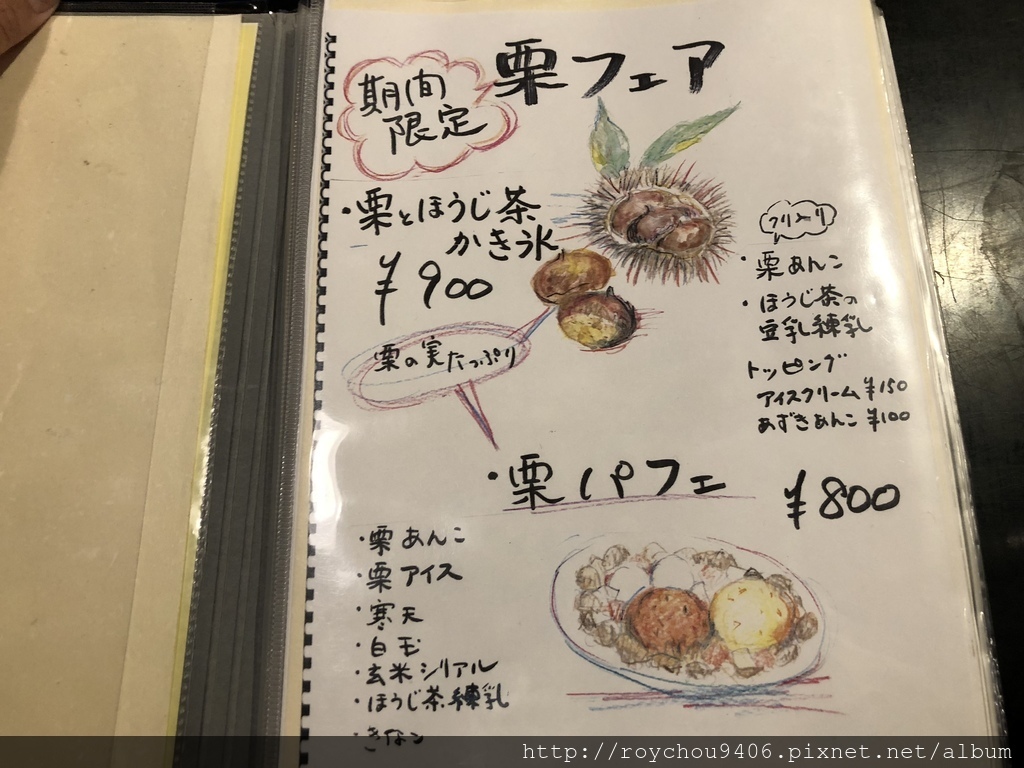 栗フェア
期間
限定
・栗とほうじ茶
かき氷
¥900
栗の実たっぷり
フリ入り
・栗あんこ
・ほうじ茶の
豆乳練乳
トッピング
アイスクリーム ¥150
あずきあんこ ¥100
・栗パフェ ¥800
・栗あんこ
・栗アイス
・寒天
・白玉
・玄米シリアル
・ほうじ茶練乳
・きなこ
http://roychou9406.pixnet.net/album